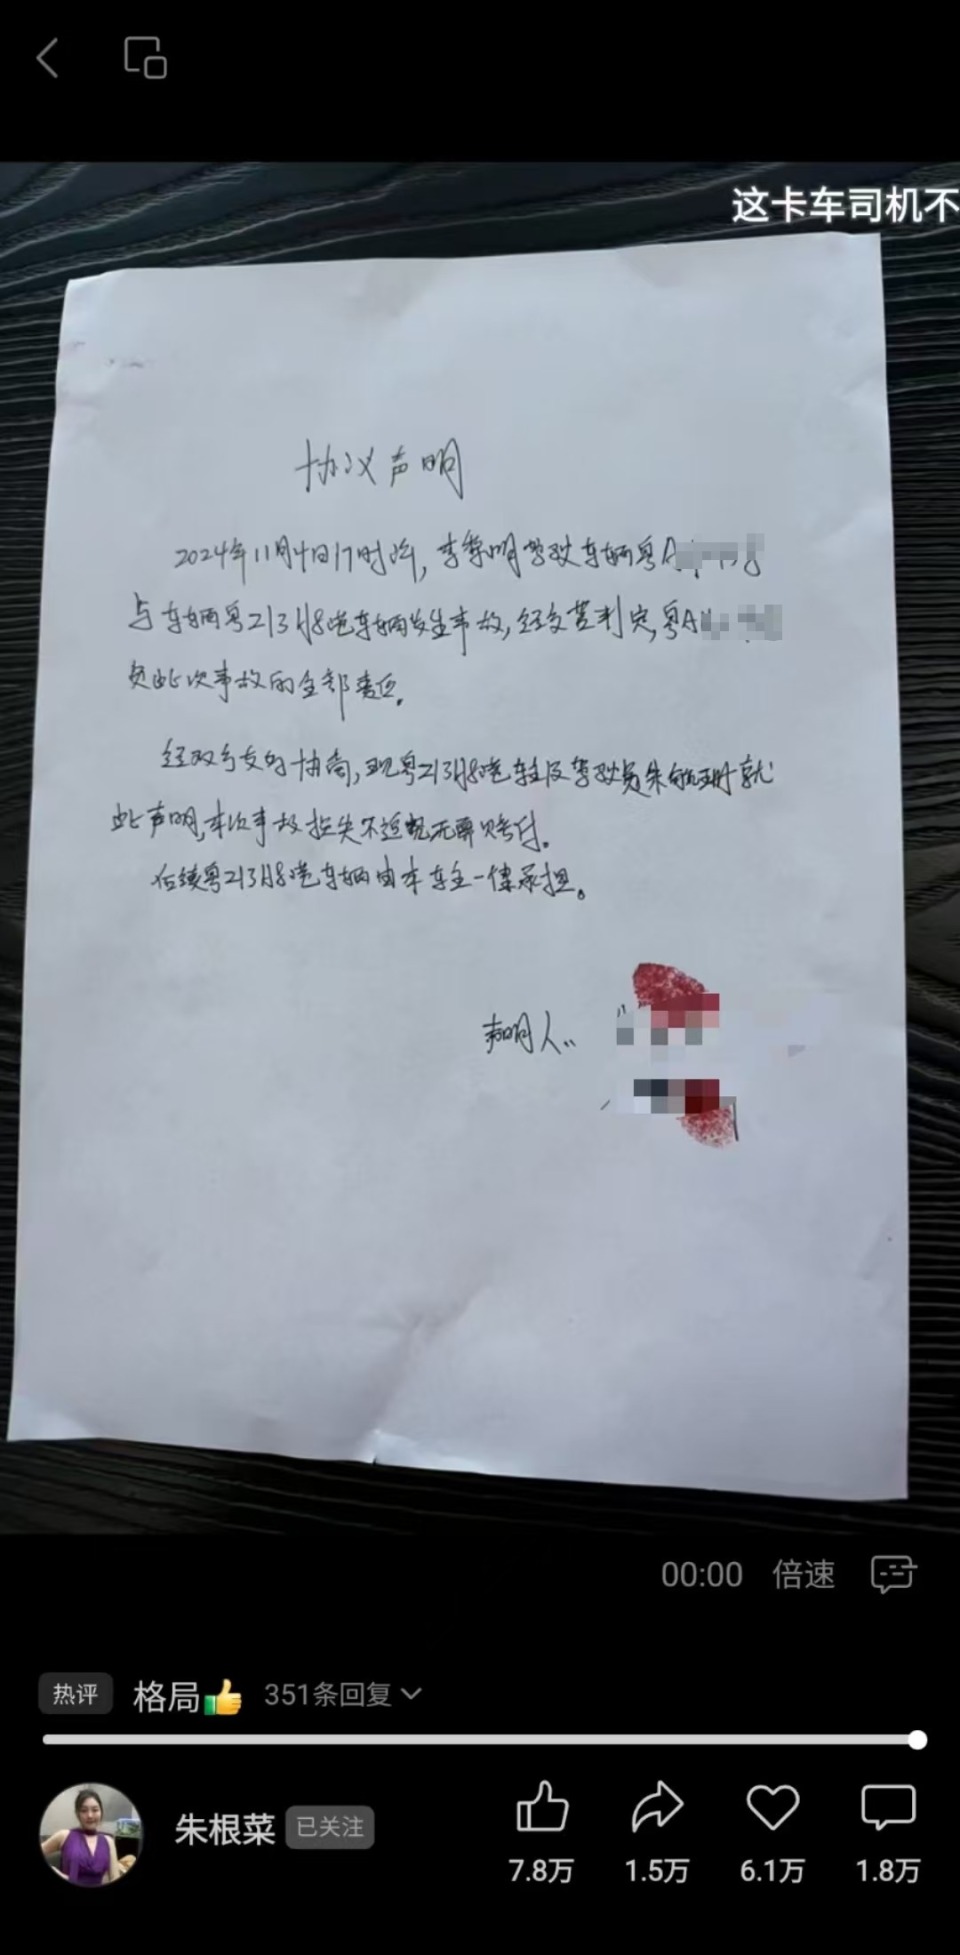 这卡车司机不
协议声明
2024年11月4日17时许，李 明驾驶车辆粤A
与车辆粤Z13H8港车辆发生事故，经交警判定，粤A
负此次事故的全部责任。
经双方友好协商，现粤Z13H8港车主及驾驶员朱 就
此声明，本次事故损失不追究无需赔付。
后续粤Z13H8港车辆由本车主一律承担。
声明人：
00:00 倍速
热评 格局 351条回复
朱根菜 已关注
7.8万 1.5万 6.1万 1.8万